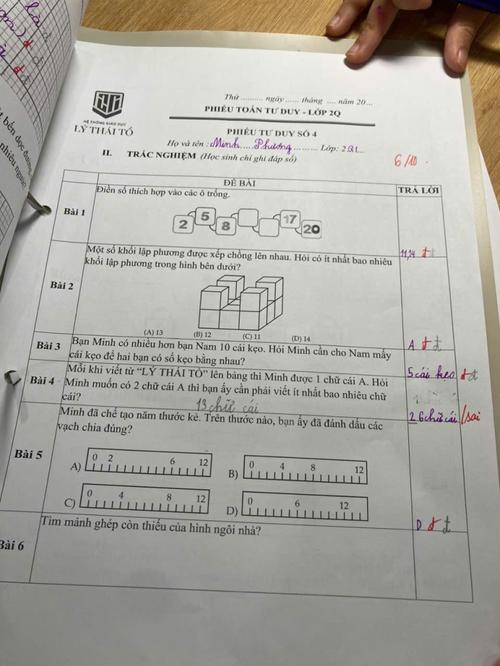 Thứ .......... ngày ...... tháng .... năm 20...
PHIẾU TOÁN TƯ DUY - LỚP 2Q
HỆ THỐNG GIÁO DỤC
LÝ THÁI TỔ
PHIẾU TƯ DUY SỐ 4
Họ và tên : Minh Phương Lớp: 2Q1
II. TRẮC NGHIỆM (Học sinh chỉ ghi đáp số)
6/10
ĐỀ BÀI
TRẢ LỜI
Bài 1
Điền số thích hợp vào các ô trống.
2 5 8 17 20
11,14 đ
Bài 2
Một số khối lập phương được xếp chồng lên nhau. Hỏi có ít nhất bao nhiêu
khối lập phương trong hình bên dưới?
(A) 13 (B) 12 (C) 11 (D) 14
A đ
Bài 3
Bạn Minh có nhiều hơn bạn Nam 10 cái kẹo. Hỏi Minh cần cho Nam mấy
cái kẹo để hai bạn có số kẹo bằng nhau?
5 cái kẹo đ
Bài 4
Mỗi khi viết từ “LÝ THÁI TỔ” lên bảng thì Minh được 1 chữ cái A. Hỏi
Minh muốn có 2 chữ cái A thì bạn ấy cần phải viết ít nhất bao nhiêu chữ
cái?
13 chữ cái
26 chữ cái / sai
Bài 5
Minh đã chế tạo năm thước kẻ. Trên thước nào, bạn ấy đã đánh dấu các
vạch chia đúng?
A) 0 2 6 12
B) 0 4 8 12
C) 0 4 8 12
D) 0 6 12
D đ
Bài 6
Tìm mảnh ghép còn thiếu của hình ngôi nhà?